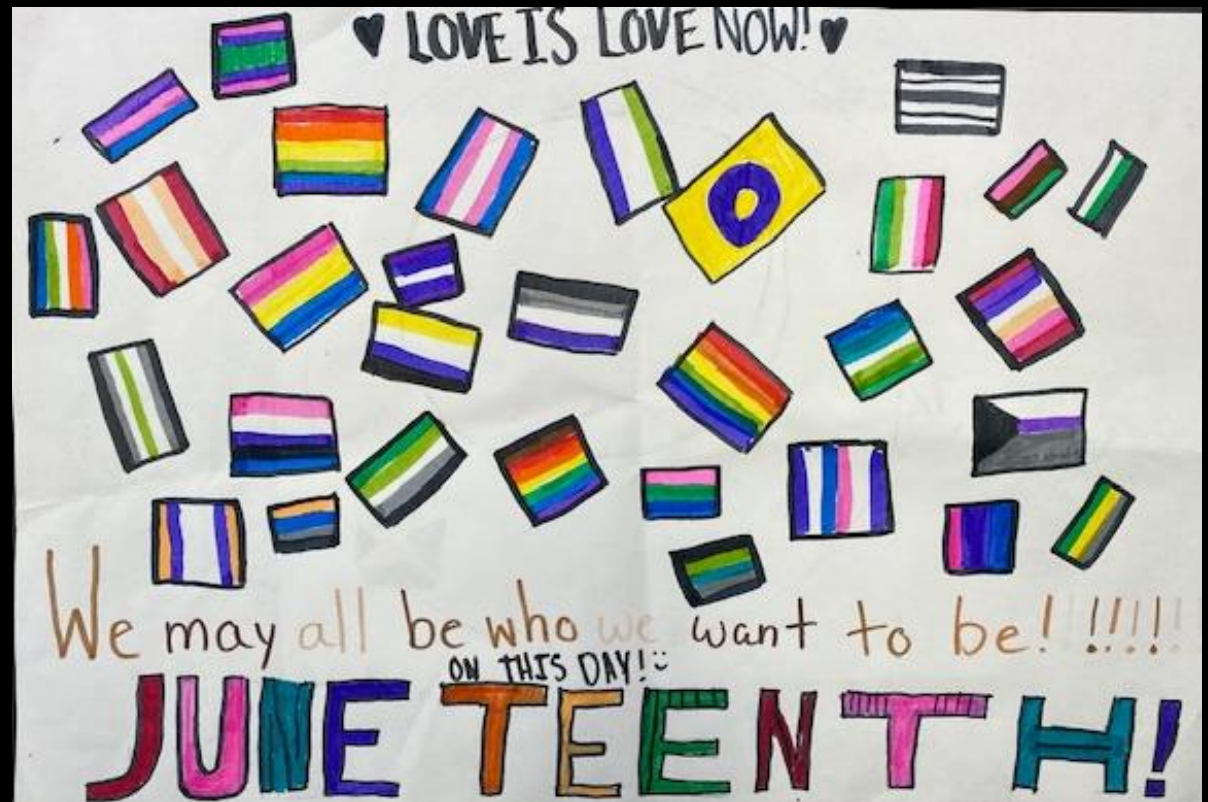 LOVE IS LOVE NOW!
We may all be who we want to be! !!!!!
ON THIS DAY!
JUNETEENTH!